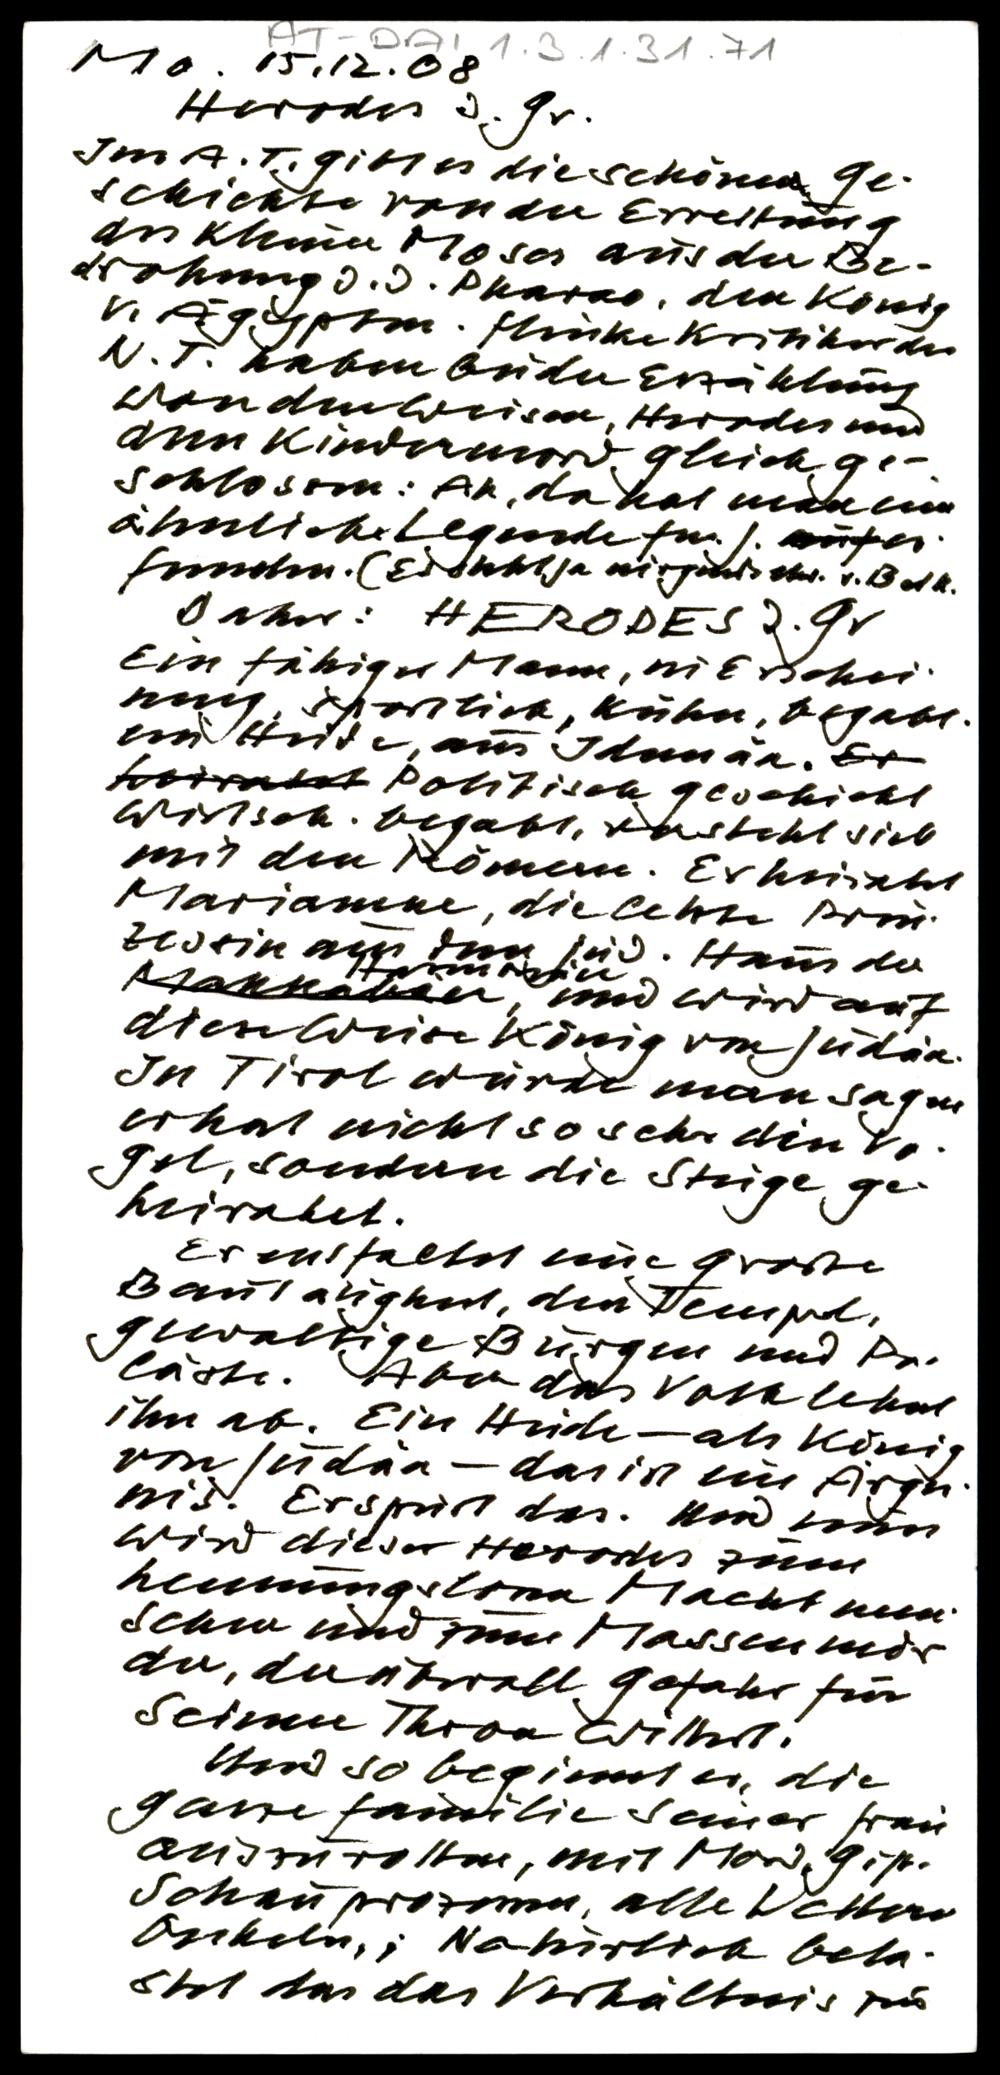 AT-DAI 1.3.1.31.71
Mo. 15.12.08
Herodes d. Gr.
Im A.T. gibt es die schöne Ge-
schichte von der Errettung
des kleinen Moses aus der Be-
drohung d. d. Pharao, den König
v. Ägypten. flinke Kritiker des
N.T. haben bei der Erzählung
von den Weisen, Herodes und
dem Kindermord gleich ge-
schlossen: Ah, da hat man eine
ähnliche Legende für J. er-
funden. (Er steht ja nirgends v. Beth.
Daher: HERODES d. Gr
Ein fähiger Mann, in Erschei-
nung, sportlich, kühn, begabt.
ein Heide, aus Idumäa. Er
heiratet Politisch geschickt
wirtsch. begabt, versteht sich
mit den Römern. Er heiratet
Mariamne, die letzte Prin-
zessin aus dem jüd. Haus der
Hasmonäer
Makkabäer, und wird auf
diese Weise König von Judäa.
In Tirol würde man sagen
er hat nicht so sehr den Vo-
gel, sondern die Steige ge-
heiratet.
Er entfaltet eine große
Bautätigkeit, den Tempel,
gewaltige Burgen und Pa-
läste. Aber das Volk lehnt
ihn ab. Ein Heide – als König
von Judäa – das ist ein Ärger-
nis. Er spürt das. Und nun
wird dieser Herodes zum
hemmungslosen Macht men-
schen und zum Massenmör
der, der überall Gefahr für
seinen Thron wittert.
Und so beginnt er, die
ganze Familie seiner Frau
auszurotten, mit Mord, Gift,
Schauprozessen, alle Vettern
Onkeln,; Natürlich bela-
stet das das Verhältnis zur